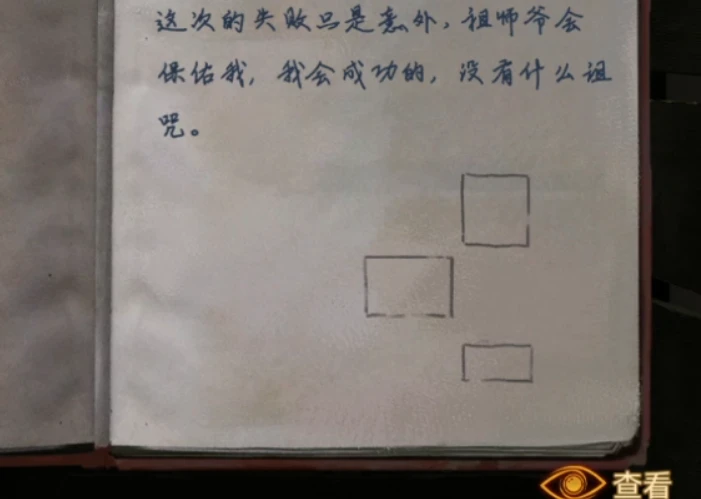 这次的失败只是意外，祖师爷会
保佑我，我会成功的，没有什么诅
咒。
查看